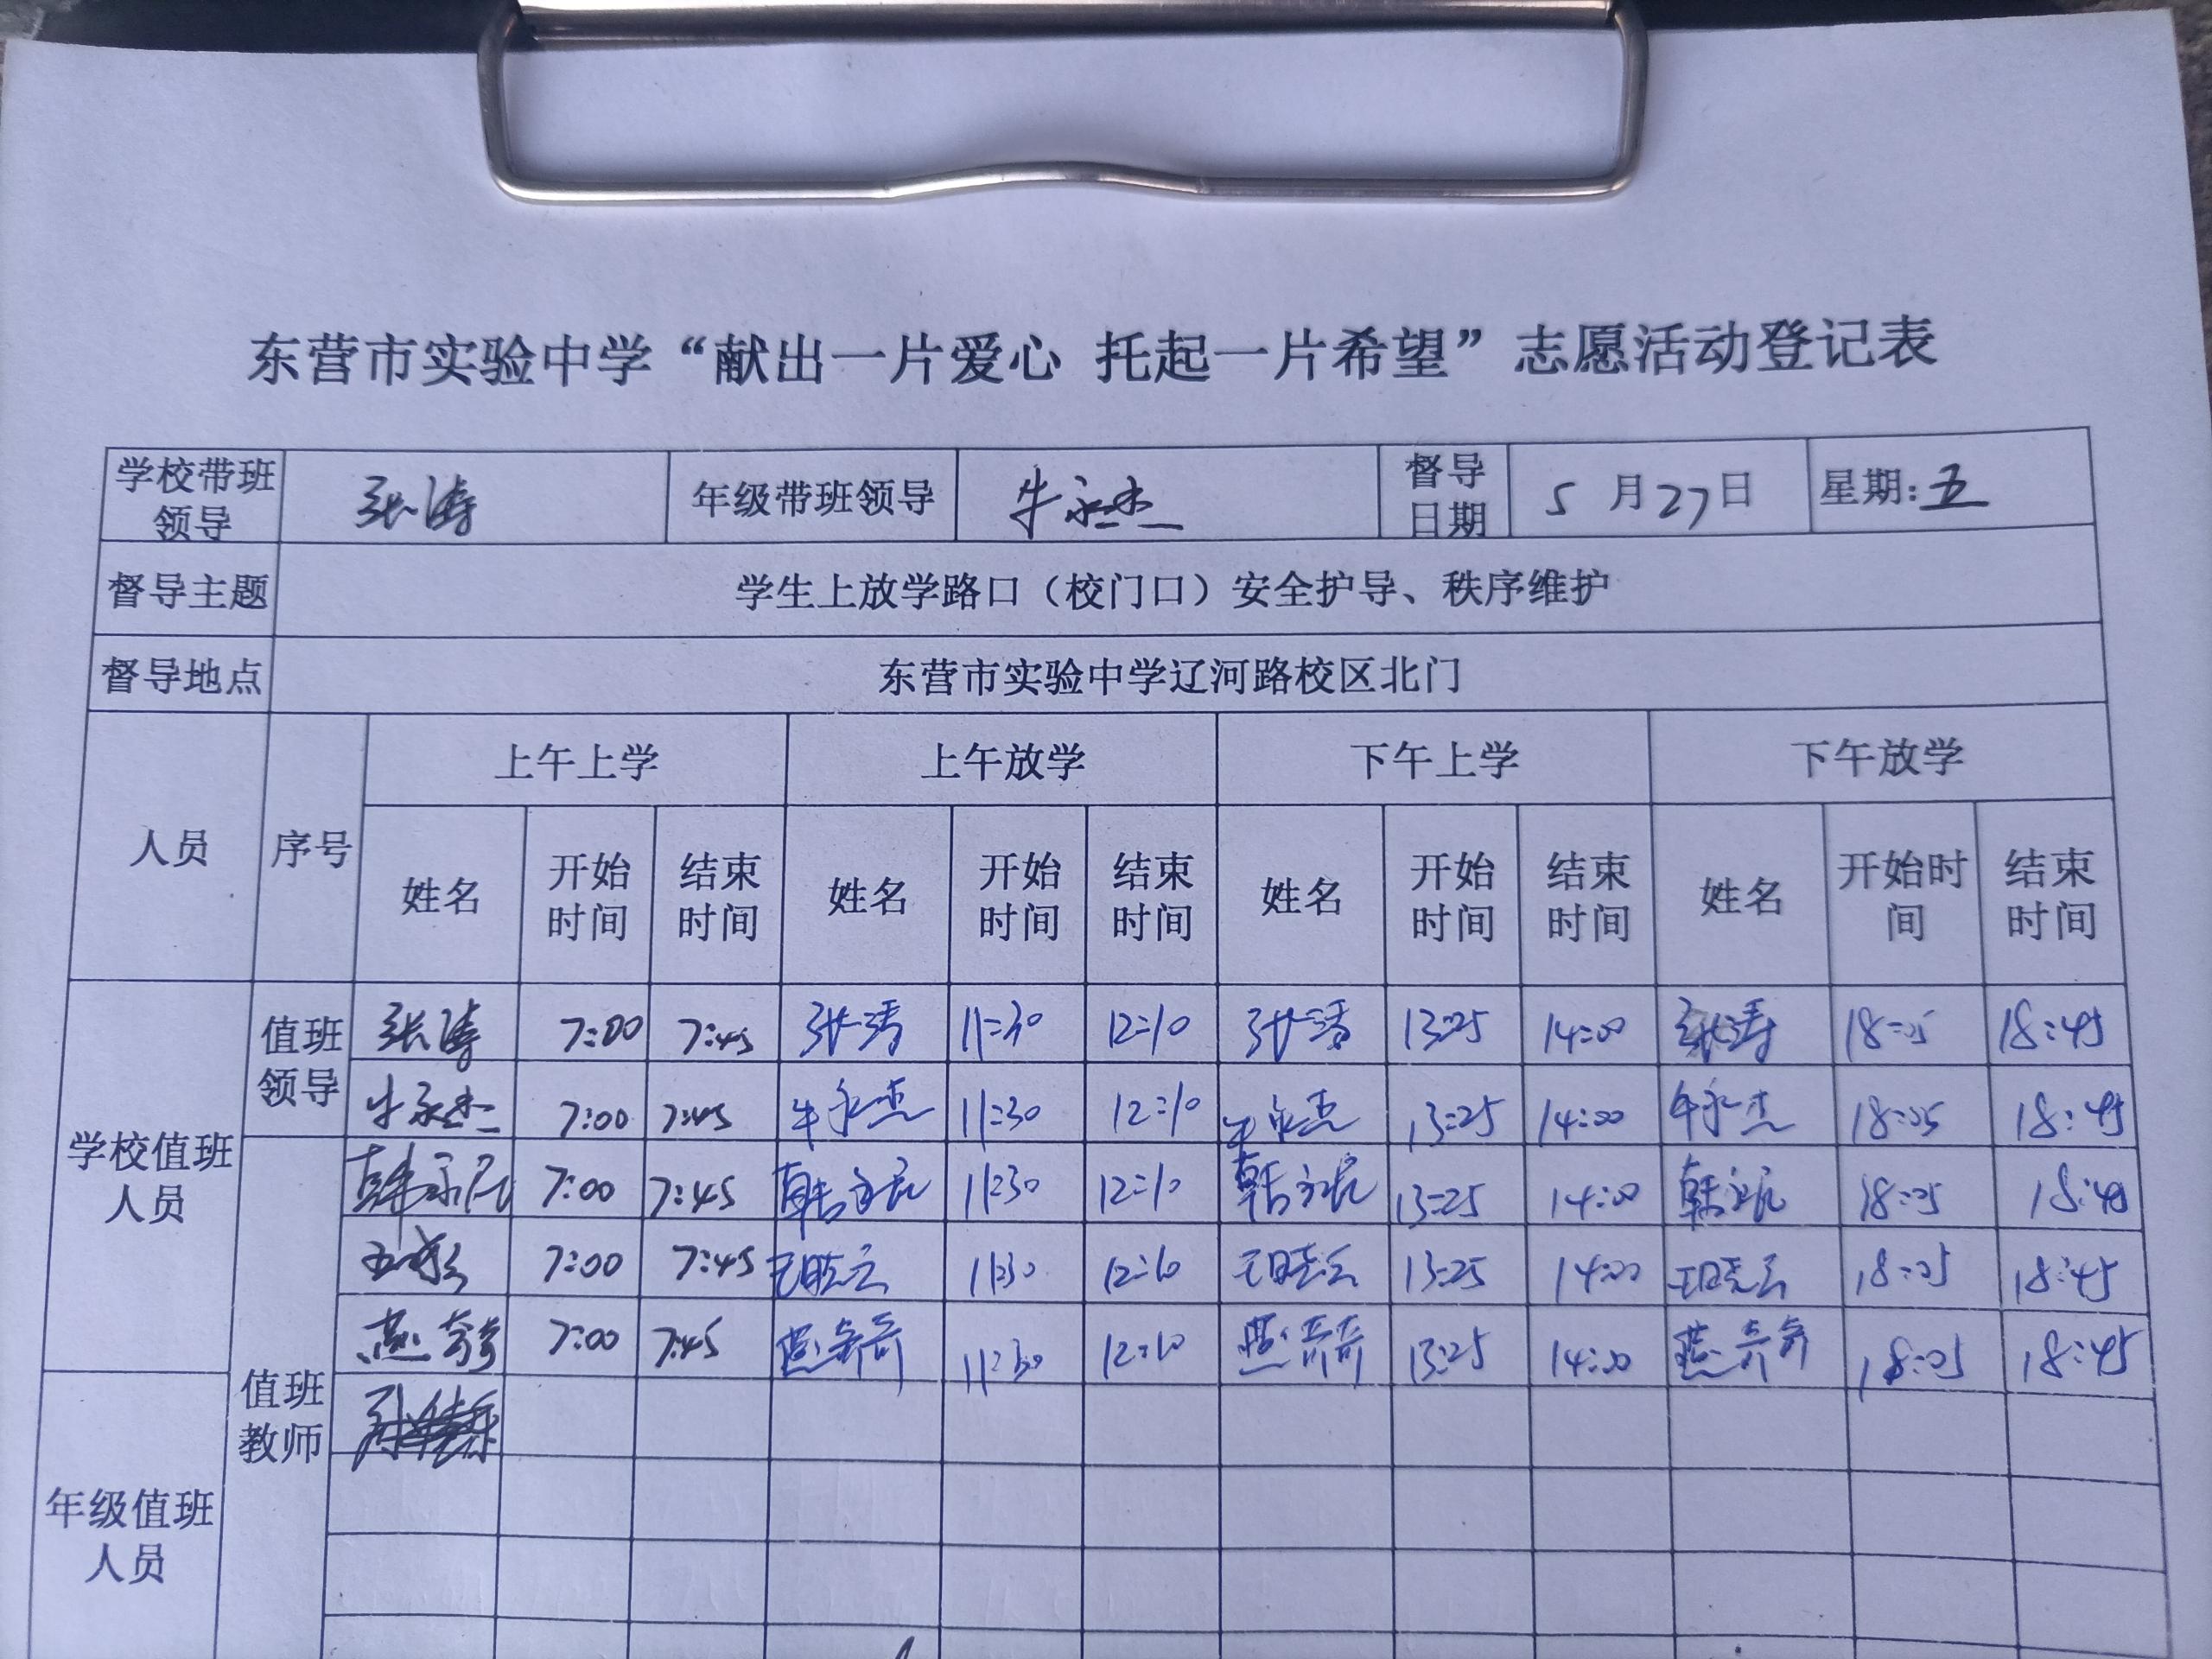 东营市实验中学“献出一片爱心 托起一片希望”志愿活动登记表
学校带班领导 张涛 年级带班领导 牛永杰 督导日期 5月27日 星期:五
督导主题 学生上放学路口（校门口）安全护导、秩序维护
督导地点 东营市实验中学辽河路校区北门
人员 序号 上午上学 上午放学 下午上学 下午放学
姓名 开始时间 结束时间 姓名 开始时间 结束时间 姓名 开始时间 结束时间 姓名 开始时间 结束时间
学校值班人员
值班领导
张涛 7:00 7:45 张涛 11:30 12:10 张涛 13:25 14:00 张涛 18:05 18:45
牛永杰 7:00 7:45 牛永杰 11:30 12:10 牛永杰 13:25 14:00 牛永杰 18:05 18:45
值班教师
韩永民 7:00 7:45 韩永民 11:30 12:10 韩永民 13:25 14:00 韩永民 18:05 18:45
7:00 7:45 王晓云 11:30 12:10 王晓云 13:25 14:00 王晓云 18:05 18:45
燕奇奇 7:00 7:45 燕奇奇 11:30 12:10 燕奇奇 13:25 14:00 燕奇奇 18:05 18:45
年级值班人员